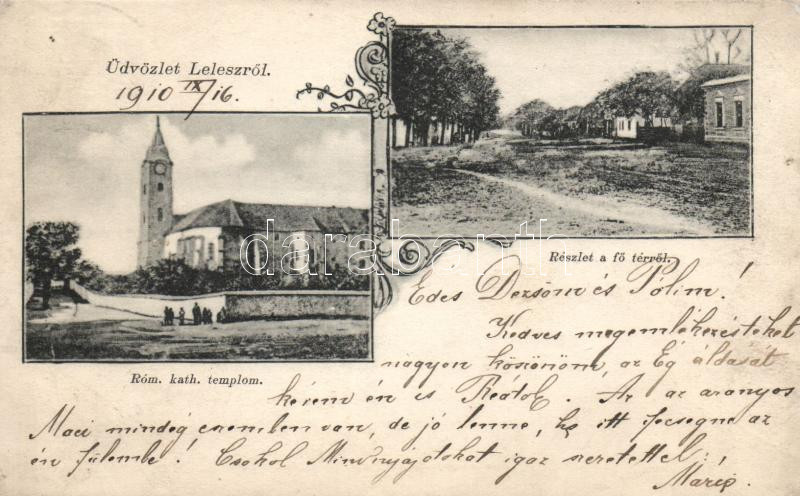 Üdvözlet Leleszről.
1910 IX/16.
Részlet a fő térről.
Róm. kath. templom.
darabanth
Édes Dezsőm és Pólim!
Kedves megemlékezésteket
nagyon köszönöm, az Ég áldását
kérem én is Reátok. Az az aranyos
Maci mindég eszemben van, de jó lenne, ha itt fecsegne az
én fülembe! Csokol Mindnyájotokat igaz szeretettel:
Máris.